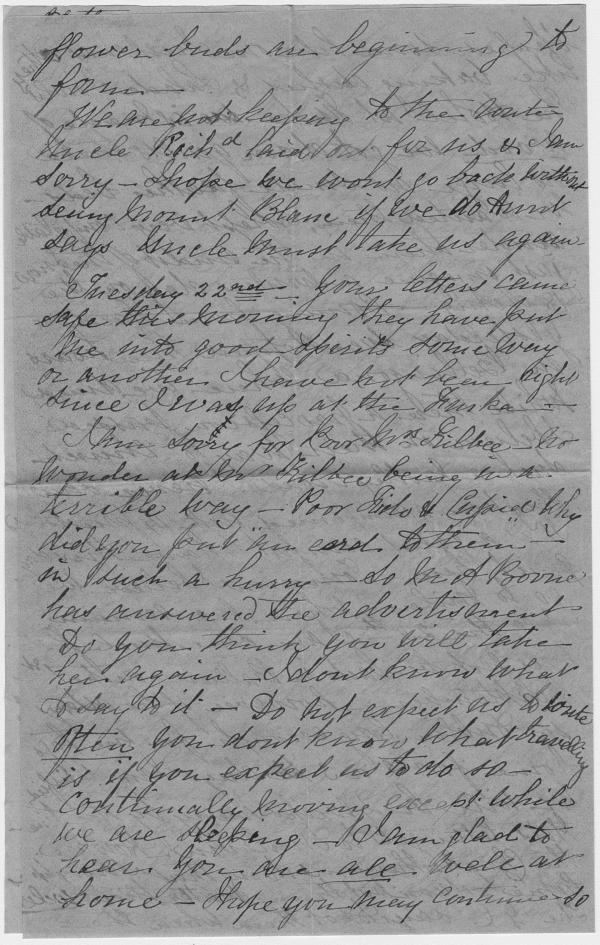 flower buds are beginning to
form —
We are not keeping to the route
Uncle Richd laid out for us & I am
sorry — I hope we wont go back without
seeing Mount Blanc if we do Aunt
says Uncle must take us again —
Tuesday 22nd — Your letters came
safe this morning they have put
me into good spirits some way
or another I have not been right
since I was up at the Furka —
I am sorry for Poor Mrs Kilbee — no
wonder at Mr Kilbee being in a
terrible way — Poor Fido & Cupid why
did you put "an end to them" —
in such a hurry — So M A Boone
has answered the advertisment
Do you think you will take
her again — I dont know what
to say to it — Do not expect us to write
often you dont know what travelling
is if you expect us to do so —
continually moving except while
we are sleeping — I am glad to
hear you are all well at
home — I hope you may continue so